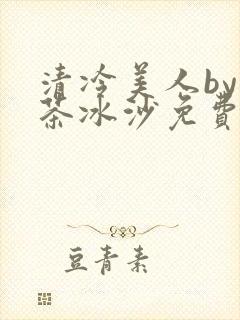 清冷美人by
茶冰沙免费
豆青素